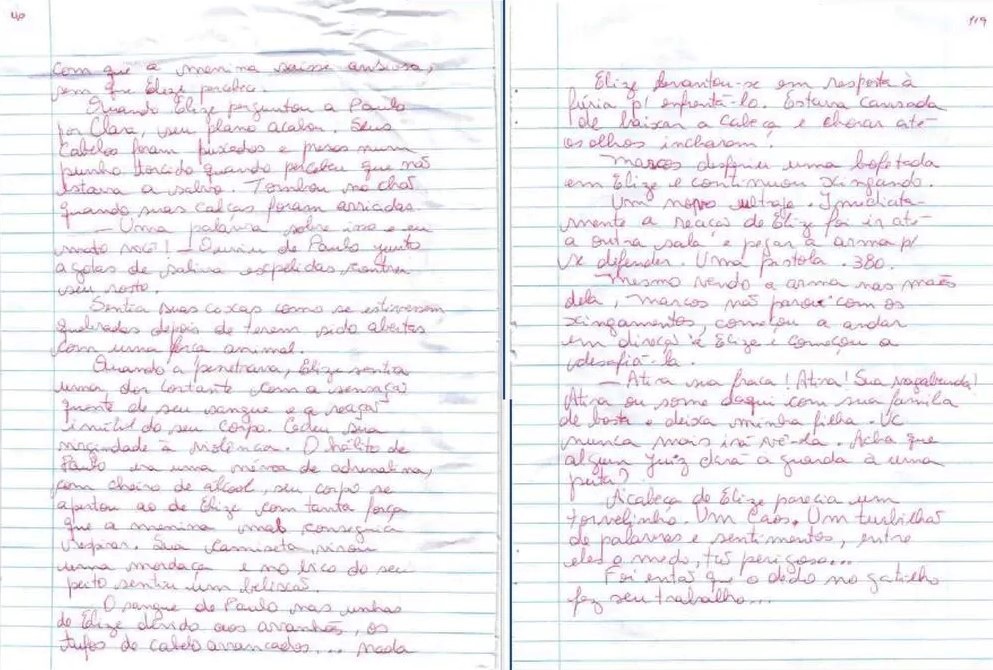 40
com que a menina saísse ansiosa,
sem que Elize perceba.
Quando Elize perguntou a Paulo
por Clara, seu plano acabou. Seus
cabelos foram puxados e presos num
punho torcido quando percebeu que não
estava a salvo. Tombou no chão
quando suas calças foram arriadas.
— Uma palavra sobre isso e eu
mato você! — Ouviu de Paulo junto
a gotas de saliva expelidas contra
seu rosto.
Sentia suas coxas como se estivessem
quebradas depois de terem sido abertas
com uma força animal.
Quando a penetrava, Elize sentia
uma dor cortante com a sensação
quente de seu sangue e a reação
inútil do seu corpo. Cedeu sua
virgindade à violência. O hálito de
Paulo era uma névoa de adrenalina,
com cheiro de álcool, seu corpo se
apertou ao de Elize com tanta força
que a menina mal conseguia
respirar. Sua camiseta virou
uma mordaça e no bico do seu
peito sentiu um beliscão.
O sangue de Paulo nas unhas
de Elize devido aos arranhões, os
tufos de cabelo arrancados... Nada
119
Elize levantou-se em resposta à
fúria p/ enfrentá-lo. Estava cansada
de baixar a cabeça e chorar até
os olhos incharem!
Marcos desferiu uma bofetada
em Elize e continuou xingando.
Um novo ultraje. Imediata-
mente a reação de Elize foi ir até
a outra sala e pegar a arma p/
se defender. Uma pistola .380.
Mesmo vendo a arma nas mãos
dela, Marcos não parou com os
xingamentos, começou a andar
em direção à Elize e começou a
desafiá-la.
— Atira sua fraca! Atira! Sua vagabunda!
Atira ou some daqui com sua família
de bosta e deixa minha filha. Vc
nunca mais irá vê-la. Acha que
algum juiz dará a guarda à uma
puta?
A cabeça de Elize parecia um
torvelinho. Um caos. Um turbilhão
de palavras e sentimentos, entre
eles o medo, tão perigoso...
Foi então que o dedo no gatilho
fez seu trabalho...